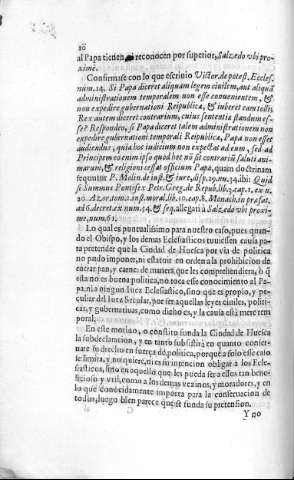 20
al Papa tienen, y reconocen por superior, Salzedo vbi pro-
ximè.
Confirmase con lo que escriuiò Victor. de potest. Eccles.
num. 14. Si Papa diceret aliquam legem ciuilem, aut aliquã
administrationem temporalem non esse conuenientem, &
non expedire gubernationi Reipublicæ, & iuberet eam tolli,
Rex autem diceret contrarium, cuius sententia standum es-
se? Respondeo, si Papa diceret talem administrationem non
expedire gubernationi temporali Reipublicæ, Papa non esset
audiendus, quia hoc iudicium non expectat ad eum, sed ad
Principem eo enim ipso quod hoc nõ sit contrariũ saluti anima-
rum, & religioni cessat officium Papæ, quam doctrinam
sequitur P. Molin. de iust. & iure, disp. 29. num. 34. ibi: Quid
si Summus Pontifex Petr. Greg. de Republ. lib. 3. cap. 1. ex n.
20. Azor. tom. 2. inst. moral. lib. 10. cap. 8. Menach. in præfat.
ad 6. decret. ex num. 54. & seq. allegati à Salzed. vbi proxi-
mè, num. 61.
Lo qual es puntualissimo para nuestro caso, pues quan-
do el Obispo, y los demas Eclesiasticos tuuiessen causa pa-
ra pretender que la Ciudad de Huesca por via de politica
no pudo imponer, ni estatuir en orden a la prohibicion de
entrar pan, y carne: de manera, que les comprehendiera, ò q̃
esta no es buena politica, no toca esse conocimiento al Pa-
pa, ni a ningun Iuez Eclesiastico, sino que es propio, y pe-
culiar del Iuez Secular, por ser aquellas leyes ciuiles, politi-
cas, y gubernatiuas, como dicho es, y la causa està mere tem-
poral.
En este motiuo, o constiro funda la Ciudad de Huesca
la subdeclaracion, y en tanto subsistirà en quanto conser-
uare su derecho en fuerça de politica, porque a solo esse caso
se limita, y no quiere, ni es su intencion obligar a los Ecle-
siasticos, sino en aquello que les pueda ser a ellos tan bene-
ficioso y vtil, como a los demas vezinos, y moradores, y en
lo que conocidamente importa para la conseruacion de
todos, luego bien parece que se funda su pretension.
Y no